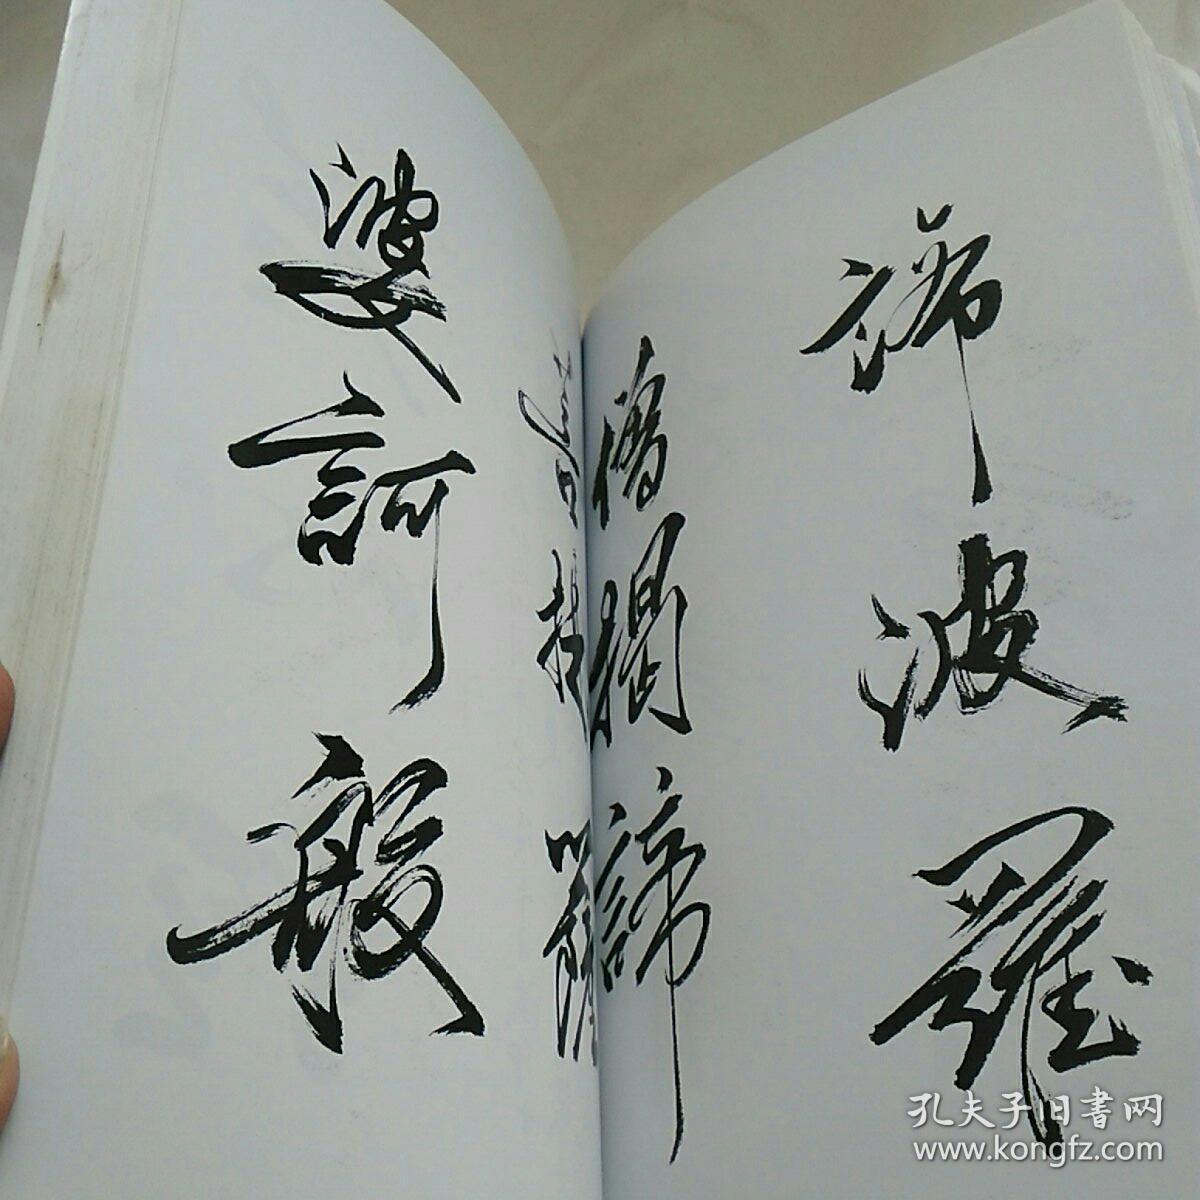 諦波羅
僧揭諦
菩提薩
婆訶般
孔夫子旧書网
www.kongfz.com